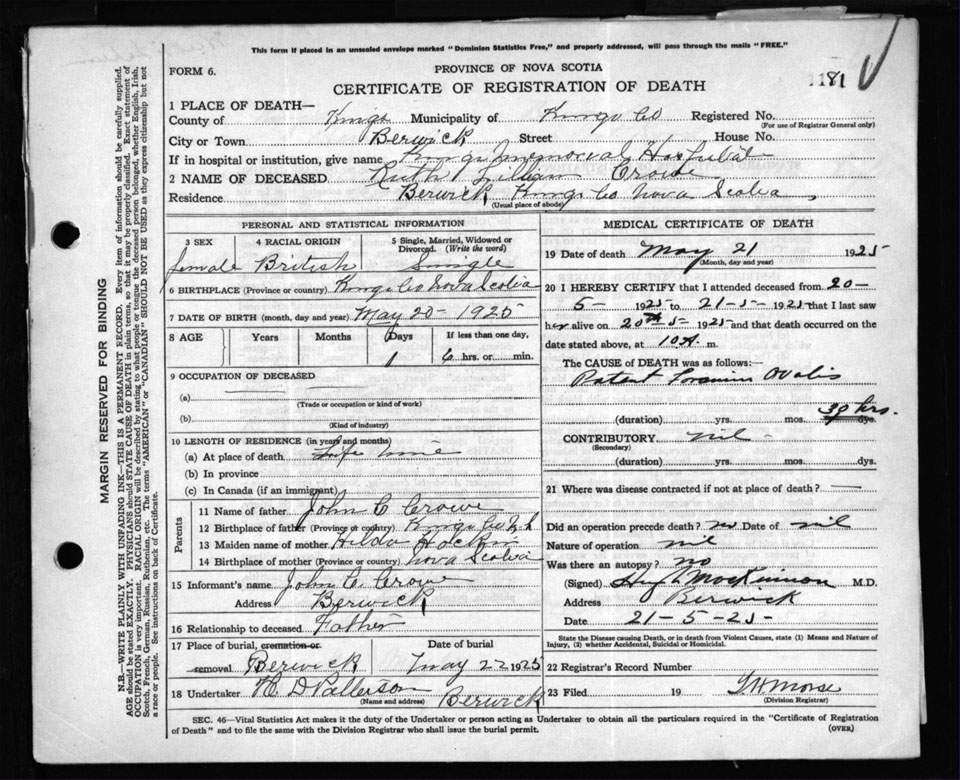 This form if placed in an unsealed envelope marked "Dominion Statistics Free," and properly addressed, will pass through the mails "FREE."
FORM 6.
PROVINCE OF NOVA SCOTIA
1181
CERTIFICATE OF REGISTRATION OF DEATH
1 PLACE OF DEATH—
County of Kings Municipality of Kings Co Registered No.
(For use of Registrar General only)
City or Town Berwick Street House No.
If in hospital or institution, give name Kings Memorial Hospital
2 NAME OF DECEASED Ruth Lillian Crowe
Residence Berwick Kings Co Nova Scotia
(Usual place of abode)
PERSONAL AND STATISTICAL INFORMATION
3 SEX 4 RACIAL ORIGIN 5 Single, Married, Widowed or Divorced. (Write the word)
female British Single
6 BIRTHPLACE (Province or country) Kings Co Nova Scotia
7 DATE OF BIRTH (month, day and year) May 20 - 1925
8 AGE Years Months Days If less than one day,
1 6 hrs. or min.
9 OCCUPATION OF DECEASED
(a)
(Trade or occupation or kind of work)
(b)
(Kind of industry)
10 LENGTH OF RESIDENCE (in years and months)
(a) At place of death Life time
(b) In province
(c) In Canada (if an immigrant)
Parents
11 Name of father John C Crowe
12 Birthplace of father (Province or country) Kings Co N.S.
13 Maiden name of mother Hilda
14 Birthplace of mother (Province or country) Nova Scotia
15 Informant's name John C. Crowe
Address Berwick
16 Relationship to deceased Father
17 Place of burial, cremation or removal Berwick Date of burial May 22 1925
18 Undertaker Berwick
(Name and address)
MEDICAL CERTIFICATE OF DEATH
19 Date of death May 21 1925
(Month, day and year)
20 I HEREBY CERTIFY that I attended deceased from 20-
5- 1925 to 21-5- 1925 that I last saw
her alive on 20th 5 1925 and that death occurred on
date stated above, at 10 A. m.
The CAUSE of DEATH was as follows:
Patent Foramen Ovalis
(duration) yrs. mos. 30 hrs. dys.
CONTRIBUTORY nil -
(Secondary)
(duration) yrs. mos. dys.
21 Where was disease contracted if not at place of death? —
Did an operation precede death? no Date of nil
Nature of operation nil
Was there an autopsy? no
(Signed) MacKinnon M.D.
Address Berwick
Date 21-5-25-
State the Disease causing Death, or in death from Violent Causes, state (1) Means and Nature of Injury, (2) whether Accidental, Suicidal or Homicidal.
22 Registrar's Record Number
23 Filed 19 Morse
(Division Registrar)
SEC. 46—Vital Statistics Act makes it the duty of the Undertaker or person acting as Undertaker to obtain all the particulars required in the "Certificate of Registration
of Death" and to file the same with the Division Registrar who shall issue the burial permit. (OVER)
MARGIN RESERVED FOR BINDING
N.B.—WRITE PLAINLY WITH UNFADING INK—THIS IS A PERMANENT RECORD. Every item of information should be carefully supplied.
AGE should be stated EXACTLY. PHYSICIANS should STATE CAUSE OF DEATH in plain terms, so that it may be properly classified. Exact statement of
OCCUPATION is very important. RACIAL ORIGIN will be described by stating to what people or tongue the deceased person belonged, whether English, Irish,
Scotch, French, German, Russian, Ruthenian, etc. The terms "AMERICAN" or "CANADIAN" SHOULD NOT BE USED as they express citizenship but not
a race or people. See instructions on back of Certificate.